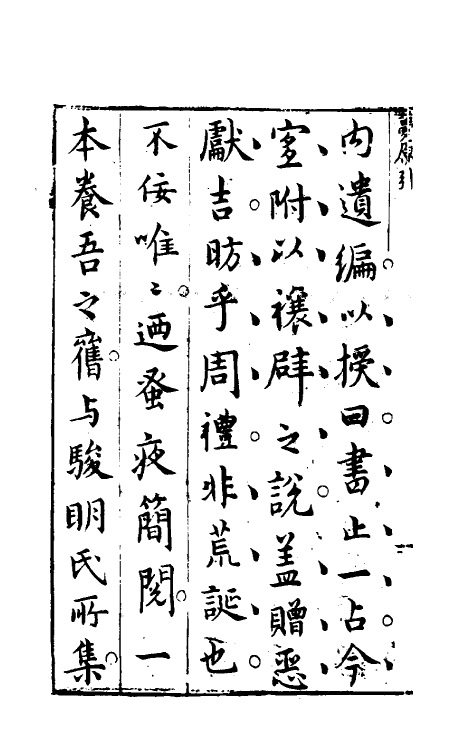 内遺編以授曰書止一占今
寔附以禳辟之說盖贈惡
獻吉昉乎周禮非荒誕也
不佞唯〻迺蚤夜簡閱一
本養吾之舊与駿眀氏所集